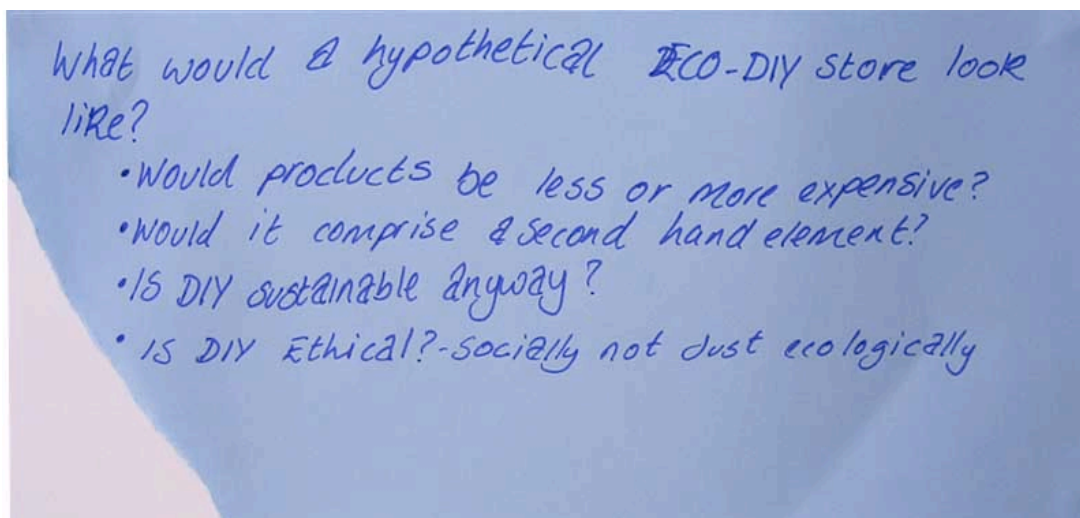 What would a hypothetical ECO-DIY store look
like?
• Would products be less or more expensive?
• Would it comprise a second hand element?
• IS DIY sustainable anyway?
• IS DIY Ethical? - Socially not Just ecologically